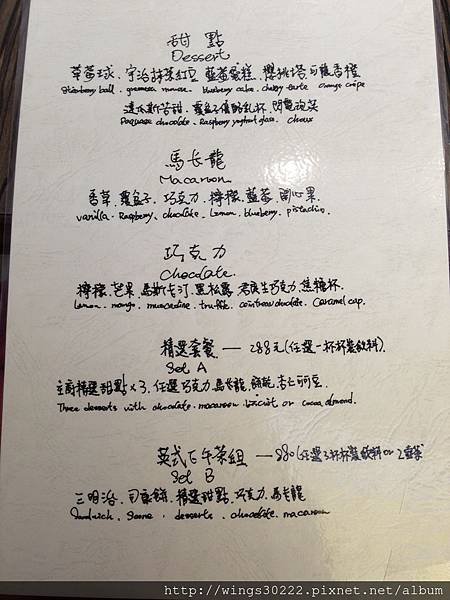 甜點
Dessert
草莓球、宇治抹茶紅豆、藍莓蛋糕、櫻桃塔、可麗香橙
Strawberry ball、greentea mousse、blueberry cake、cherry tarte orange crêpe
達瓜斯苦甜、覆盆子優酪乳杯、閃電泡芙
chocolate、Raspberry yoghurt glass、choux
馬卡龍
Macaroon
香草、覆盆子、巧克力、檸檬、藍莓、開心果
vanilla、Raspberry、chocolate、Lemon、blueberry、pistachio
巧克力
Chocolate
檸檬、芒果、馬斯卡河、黑松露、君度生巧克力、焦糖杯
Lemon、mango、muscadine、truffle、cointreau chocolate、Caramel cup
精選套餐 — 288元(任選一杯杯裝飲料)
Set A
主廚精選甜點x3、任選巧克力、馬卡龍、餅乾、杏仁可可豆
Three desserts with chocolate、macaroon biscuit or cocoa almond
英式下午茶組 — 880(任選2杯杯裝飲料or 2壺茶
Set B
三明治、司康餅、精選甜點、巧克力、馬卡龍
Sandwich、Scone、desserts、chocolate、macaroon
http://wings30222.pixnet.net/album